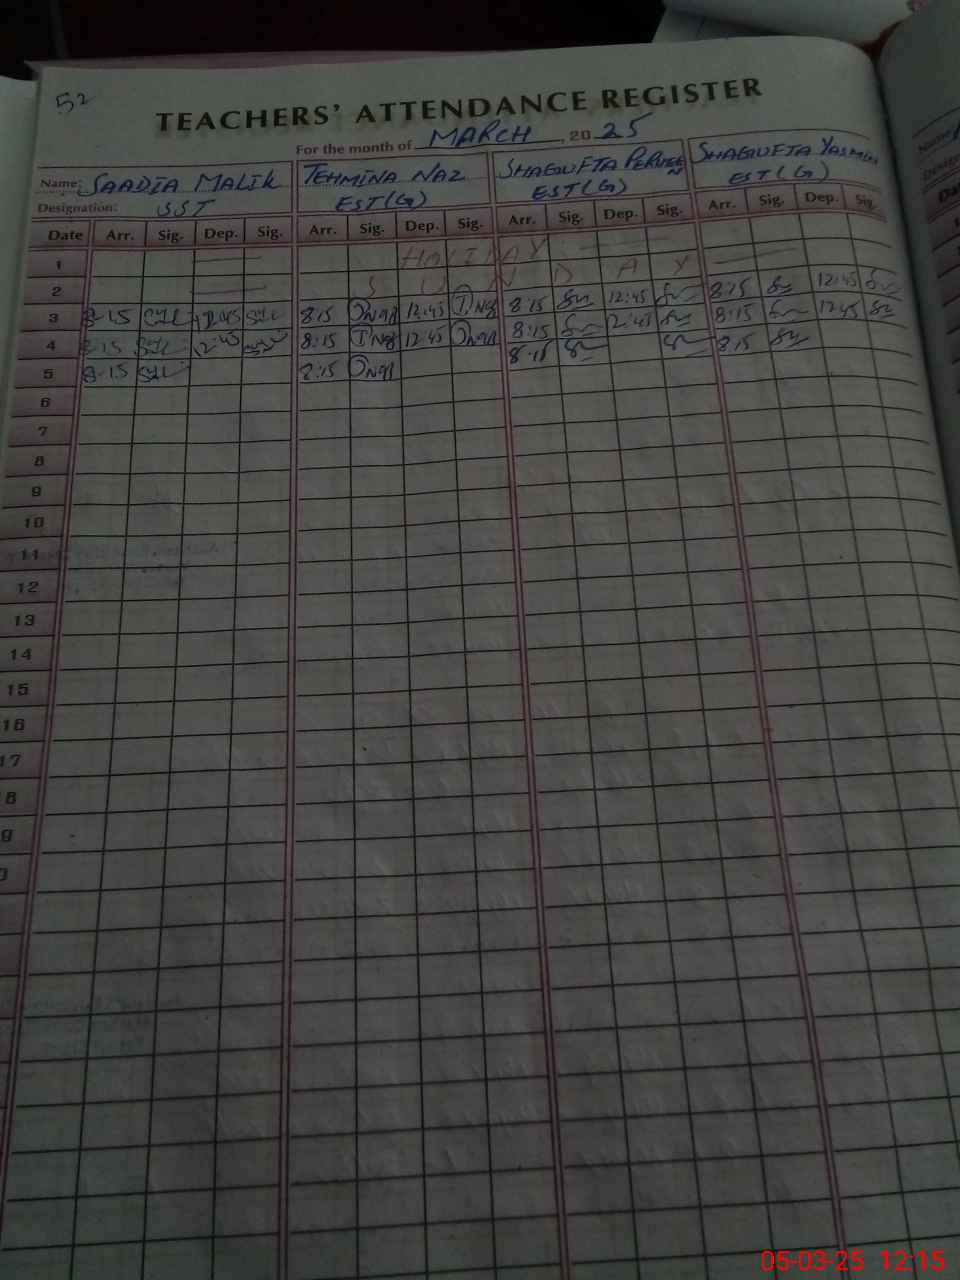 52
TEACHERS' ATTENDANCE REGISTER
For the month of MARCH, 2025
Name: SAADIA MALIK TEHMINA NAZ SHAGUFTA PERVEEN SHAGUFTA YASMIN
Designation: SST EST(G) EST(G) EST(G)
Date Arr. Sig. Dep. Sig. Arr. Sig. Dep. Sig. Arr. Sig. Dep. Sig. Arr. Sig. Dep. Sig.
1 HOLIDAY
2 SUNDAY
3 8-15 8:15 12:45 T.Naz 8:15 12:45 8:15 12:45
4 8:15 12:45 8:15 T.Naz 12:45 8:15 12:45 8:15 12:45
5 8-15 8:15 8:15 8:15
6
7
8
9
10
11
12
13
14
15
16
17
8
9
05-03-25 12:15